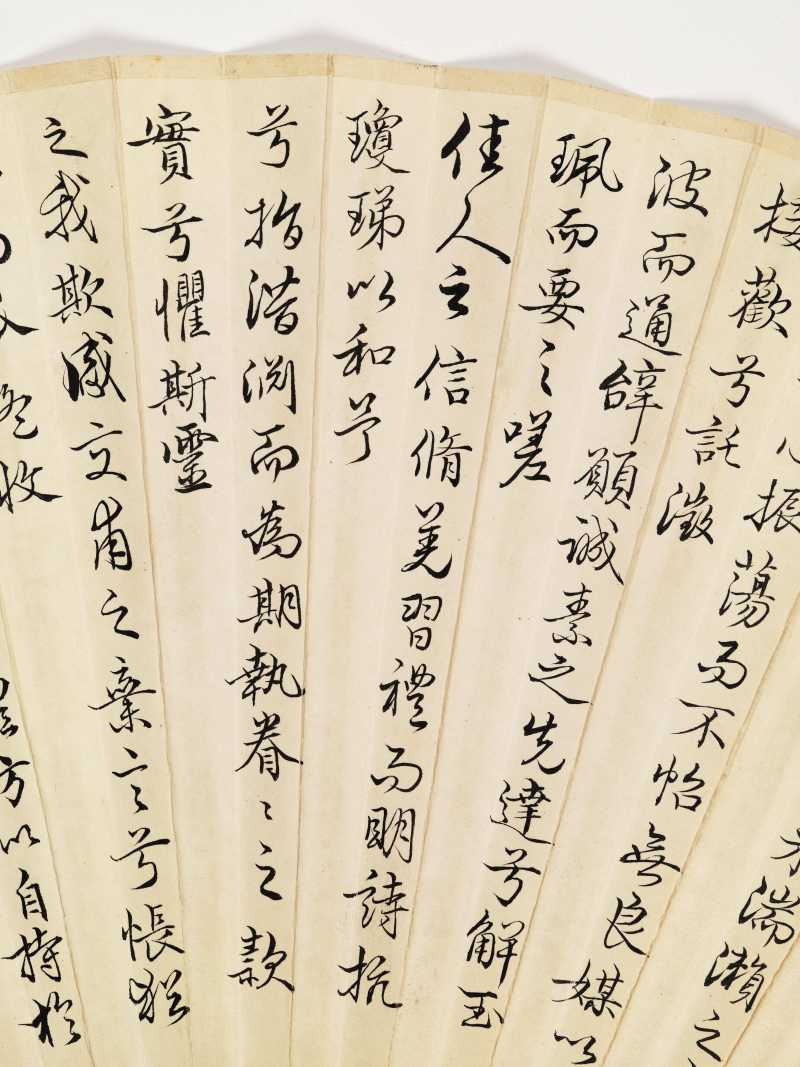 湍瀨之
心振蕩而不怡無良媒以
接歡兮託微
波而通辭願誠素之先達兮解玉
珮而要之嗟
佳人之信脩羌習禮而明詩抗
瓊珶以和予
兮指潛淵而為期執眷〻之款
實兮懼斯靈
之我欺感交甫之棄言兮悵猶
疑收
防以自持於